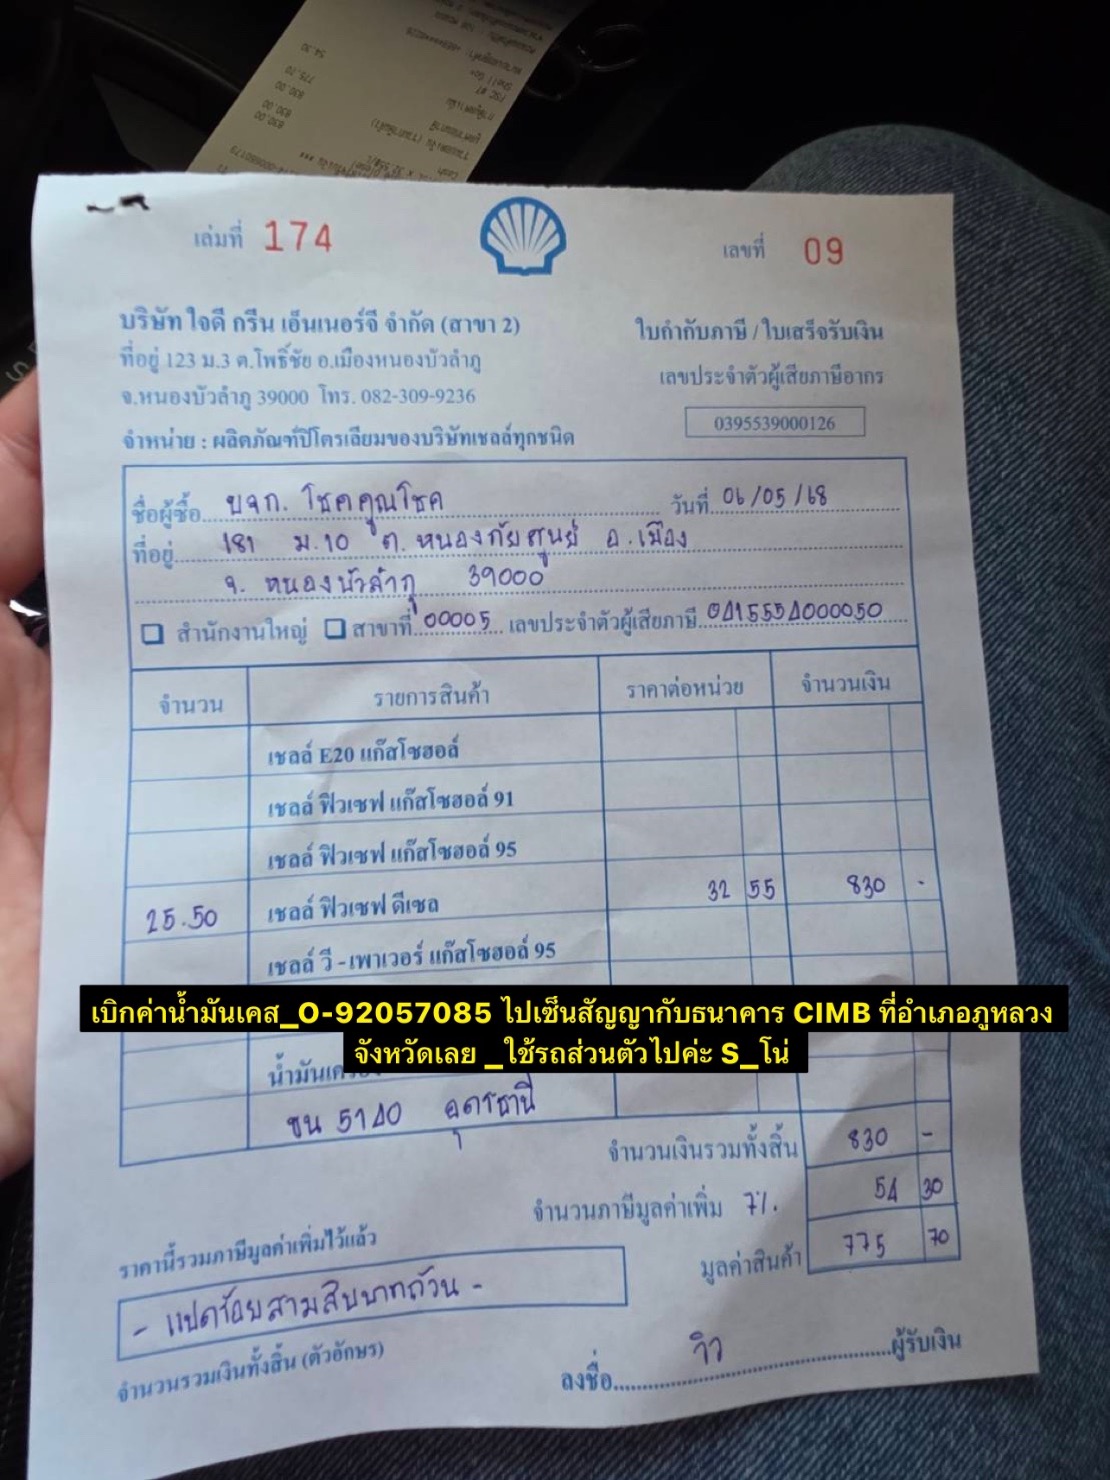 54.30
775.70
830.00
830.00
830.00
เล่มที่ 174
เลขที่ 09
บริษัท ใจดี กรีน เอ็นเนอร์จี จำกัด (สาขา 2)
ใบกำกับภาษี / ใบเสร็จรับเงิน
ที่อยู่ 123 ม.3 ต.โพธิ์ชัย อ.เมืองหนองบัวลำภู
เลขประจำตัวผู้เสียภาษีอากร
จ.หนองบัวลำภู 39000 โทร. 082-309-9236
0395539000126
จำหน่าย : ผลิตภัณฑ์ปิโตรเลียมของบริษัทเชลล์ทุกชนิด
ชื่อผู้ซื้อ บจก. โชคคูณโชค วันที่ 06/05/68
ที่อยู่ 181 ม.10 ต.หนองภัยศูนย์ อ.เมือง
จ. หนองบัวลำภู 39000
สำนักงานใหญ่ สาขาที่ 00005 เลขประจำตัวผู้เสียภาษี 0415554000050
จำนวน รายการสินค้า ราคาต่อหน่วย จำนวนเงิน
เชลล์ E20 แก๊สโซฮอล์
เชลล์ ฟิวเซฟ แก๊สโซฮอล์ 91
เชลล์ ฟิวเซฟ แก๊สโซฮอล์ 95
25.50 เชลล์ ฟิวเซฟ ดีเซล 32 55 830 -
เชลล์ วี -เพาเวอร์ แก๊สโซฮอล์ 95
เบิกค่าน้ำมันเคส_O-92057085 ไปเซ็นสัญญากับธนาคาร CIMB ที่อำเภอภูหลวง
จังหวัดเลย _ใช้รถส่วนตัวไปค่ะ S_โน่
น้ำมันเครื่อง
ขน 5140 อุดรธานี
จำนวนเงินรวมทั้งสิ้น 830 -
จำนวนภาษีมูลค่าเพิ่ม 7%. 54 30
ราคานี้รวมภาษีมูลค่าเพิ่มไว้แล้ว
มูลค่าสินค้า 775 70
- แปดร้อยสามสิบบาทถ้วน -
จำนวนรวมเงินทั้งสิ้น (ตัวอักษร)
ลงชื่อ วิว ผู้รับเงิน